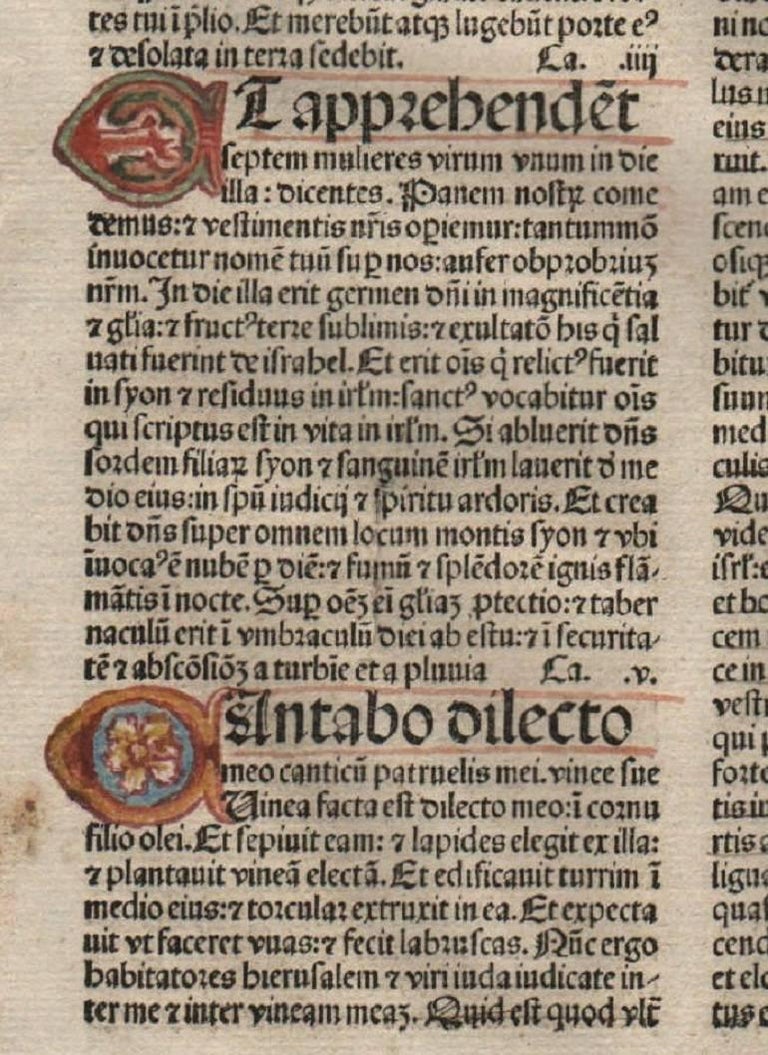 tes tui ī p̄lio. Et merebūt atqꝫ lugebūt porte eꝰ
⁊ desolata in terra sedebit. Ca. .iiij
ET apprehendēt
septem mulieres virum vnum in die
illa : dicentes. Panem nostꝝ come
demus:⁊ vestimentis nr̄is oꝑiemur:tantummō
inuocetur nomē tuū suꝑ nos:aufer obprobriuꝫ
nr̄m. In die illa erit germen dn̄i in magnificētia
⁊ gl̄ia:⁊ fructꝰ terre sublimis:⁊ exultatō his q̇ sal
uati fuerint de israhel. Et erit oīs q̇ relictꝰ fuerit
in syon ⁊ residuus in irl̄m:sanctꝰ vocabitur oīs
qui scriptus est in vita in irl̄m. Si abluerit dn̄s
sordem filiaꝝ syon ⁊ sanguinē irl̄m lauerit d̄ me
dio eius:in spū iudicij ⁊ spiritu ardoris. Et crea
bit dn̄s super omnem locum montis syon ⁊ vbi
īuocaꝰ ē nubē ꝑ diē:⁊ fumū ⁊ splēdorē ignis flā-
mātis ī nocte. Suꝑ oēꝫ ei gl̄iaꝫ ꝓtectio:⁊ taber
naculū erit ī vmbraculū diei ab estu:⁊ ī securita-
tē ⁊ abscōsiōꝫ a turbīe et a pluuia Ca. .v.
CAntabo dilecto
meo canticū patruelis mei. vinee sue
Uinea facta est dilecto meo:ī cornu
filio olei. Et sepiuit eam: ⁊ lapides elegit ex illa:
⁊ plantauit vineā electā. Et edificauit turrim ī
medio eius:⁊ torcular extruxit in ea. Et expecta
uit vt faceret vuas:⁊ fecit labruscas. Nūc ergo
habitatores hierusalem ⁊ viri iuda iudicate in-
ter me ⁊ inter vineam meaꝫ. Quid est quod vlt̄
nin
dera
lus
eius
ruit.
am e
scen
osiqꝫ
bit̄ v
tur d
bitu
suum
med
culis
Qu
vide
isrl̄:e
et ho
cem
ce in
vestr
qui p
forte
tis iu
rtis a
ligua
quas
cend
et elo
tus e